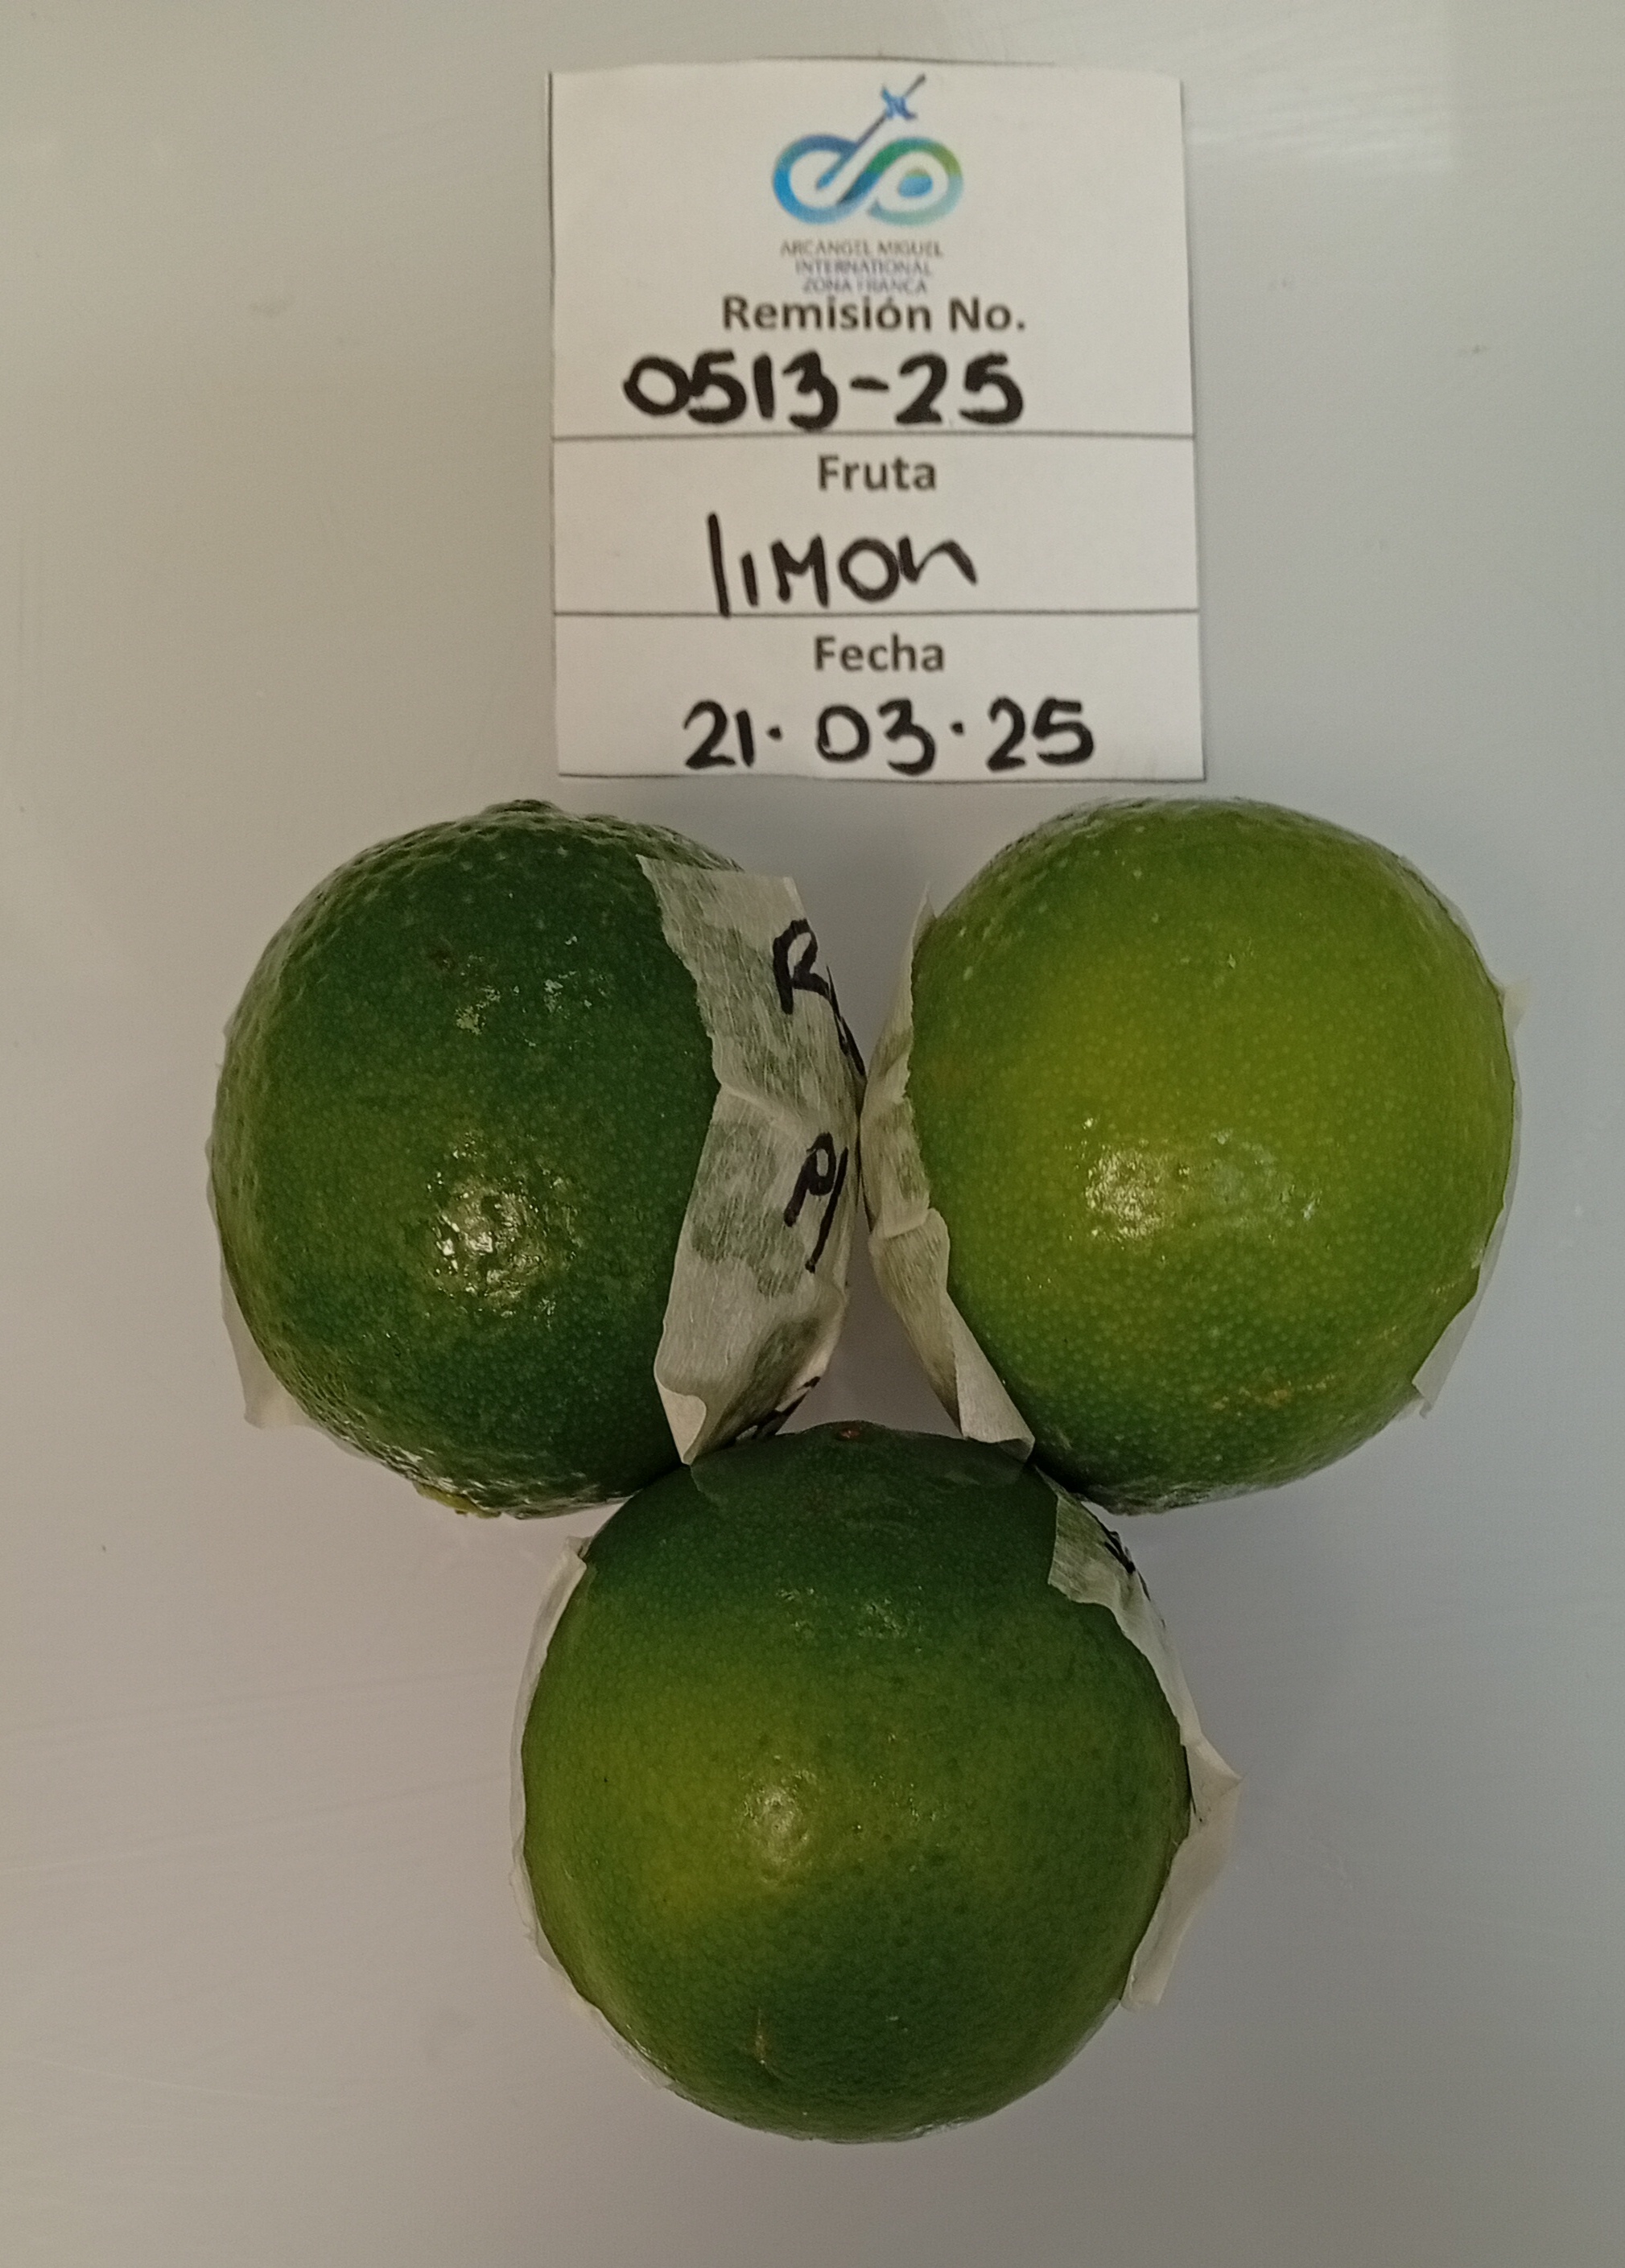 ARCANGEL MIGUEL
INTERNATIONAL
ZONA FRANCA
Remisión No.
0513-25
Fruta
limon
Fecha
21.03.25
R
P1